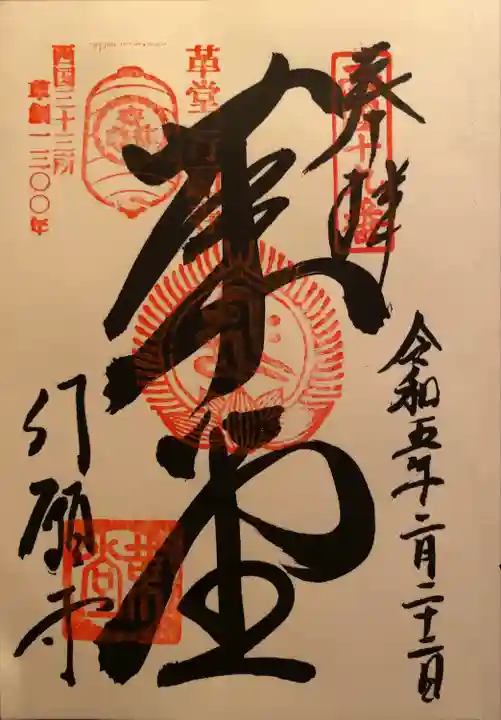 奉拝
十九番
令和五年二月二十二日
革堂
革堂 行
西国三十三所
草創一三〇〇年
行願寺
革堂